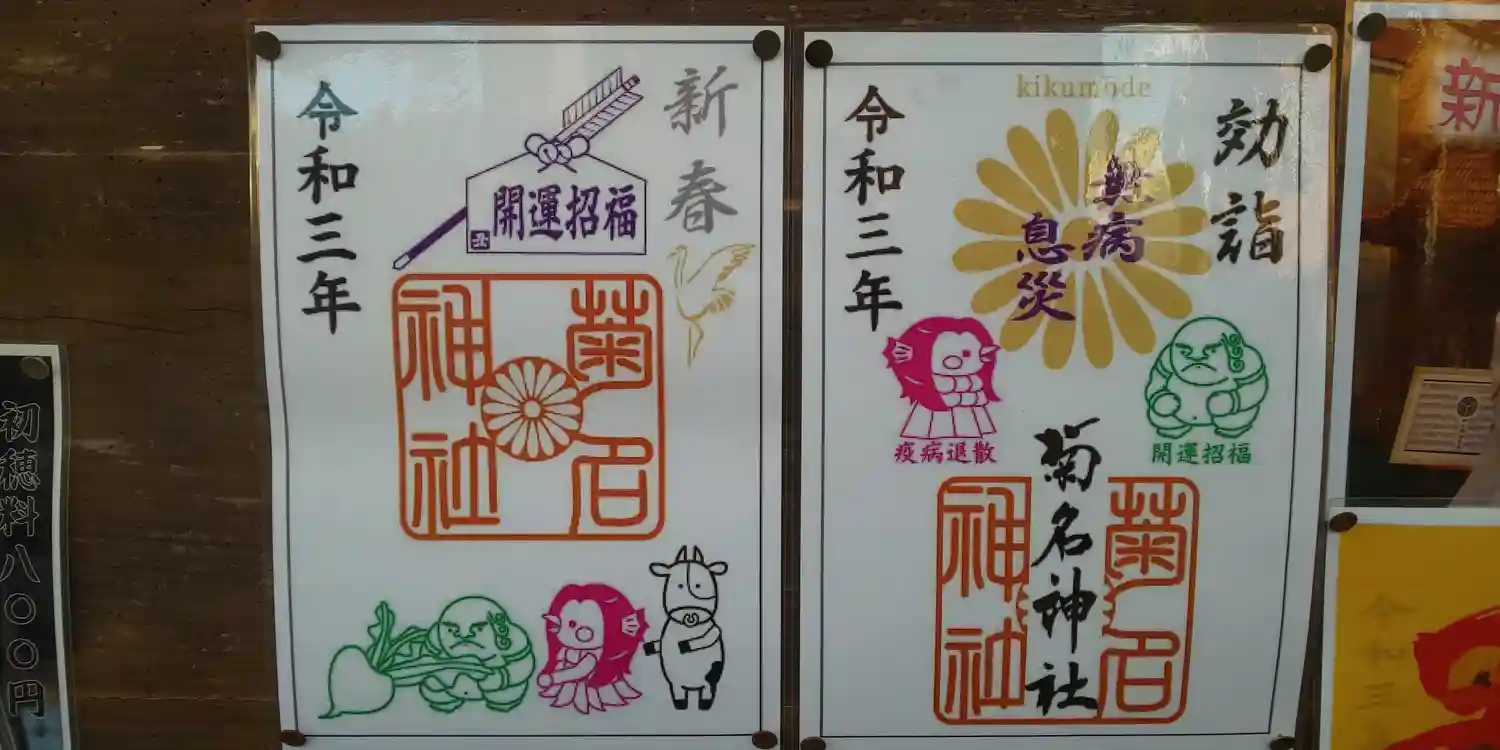 初穂料八〇〇円
新春
開運招福
丑
令和三年
菊名
神社
kikumōde
効詣
無病
息災
令和三年
疫病退散
開運招福
菊名神社
菊名
神社
新
令和三